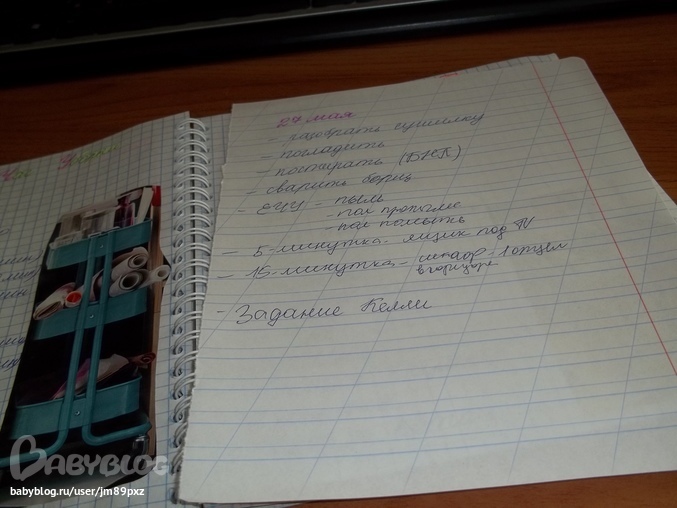 27 мая
- разобрать сушилку
- погладить
- постирать (БНП)
- сварить борщ
- ЕЦУ - пыль
- пол пропылес
- пол помыть
- 5-минутка - ящик под TV
- 15-минутка - шкаф - 1 отдел
в коридоре
- Задание Келли
BABYBLOG
babyblog.ru/user/jm89pxz